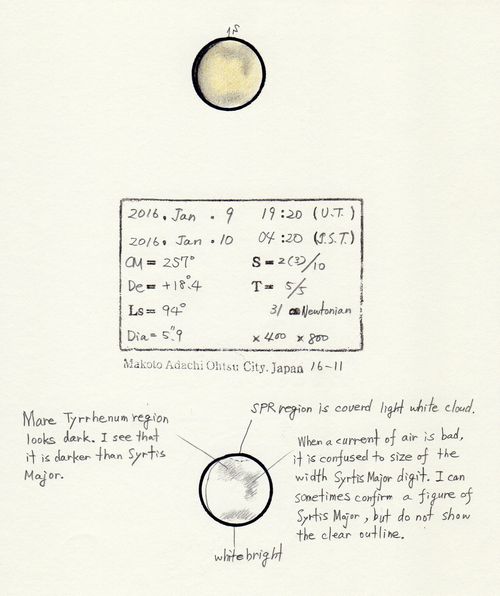 2016. Jan . 9 19:20 (U.T.)
2016. Jan . 10 04:20 (J.S.T.)
CM = 257° S = 2(3)/10
De = +18°.4 T = 5/5
Ls = 94° 31 cm Newtonian
Dia = 5".9 ×400 ×800
Makoto Adachi Ohtsu City. Japan 16-11
SPR region is coverd light white cloud.
Mare Tyrrhenum region
looks dark. I see that
it is darker than Syrtis
Major.
When a current of air is bad,
it is confused to size of the
width Syrtis Major digit. I can
sometimes confirm a figure of
Syrtis Major, but do not show
the clear outline.
white bright